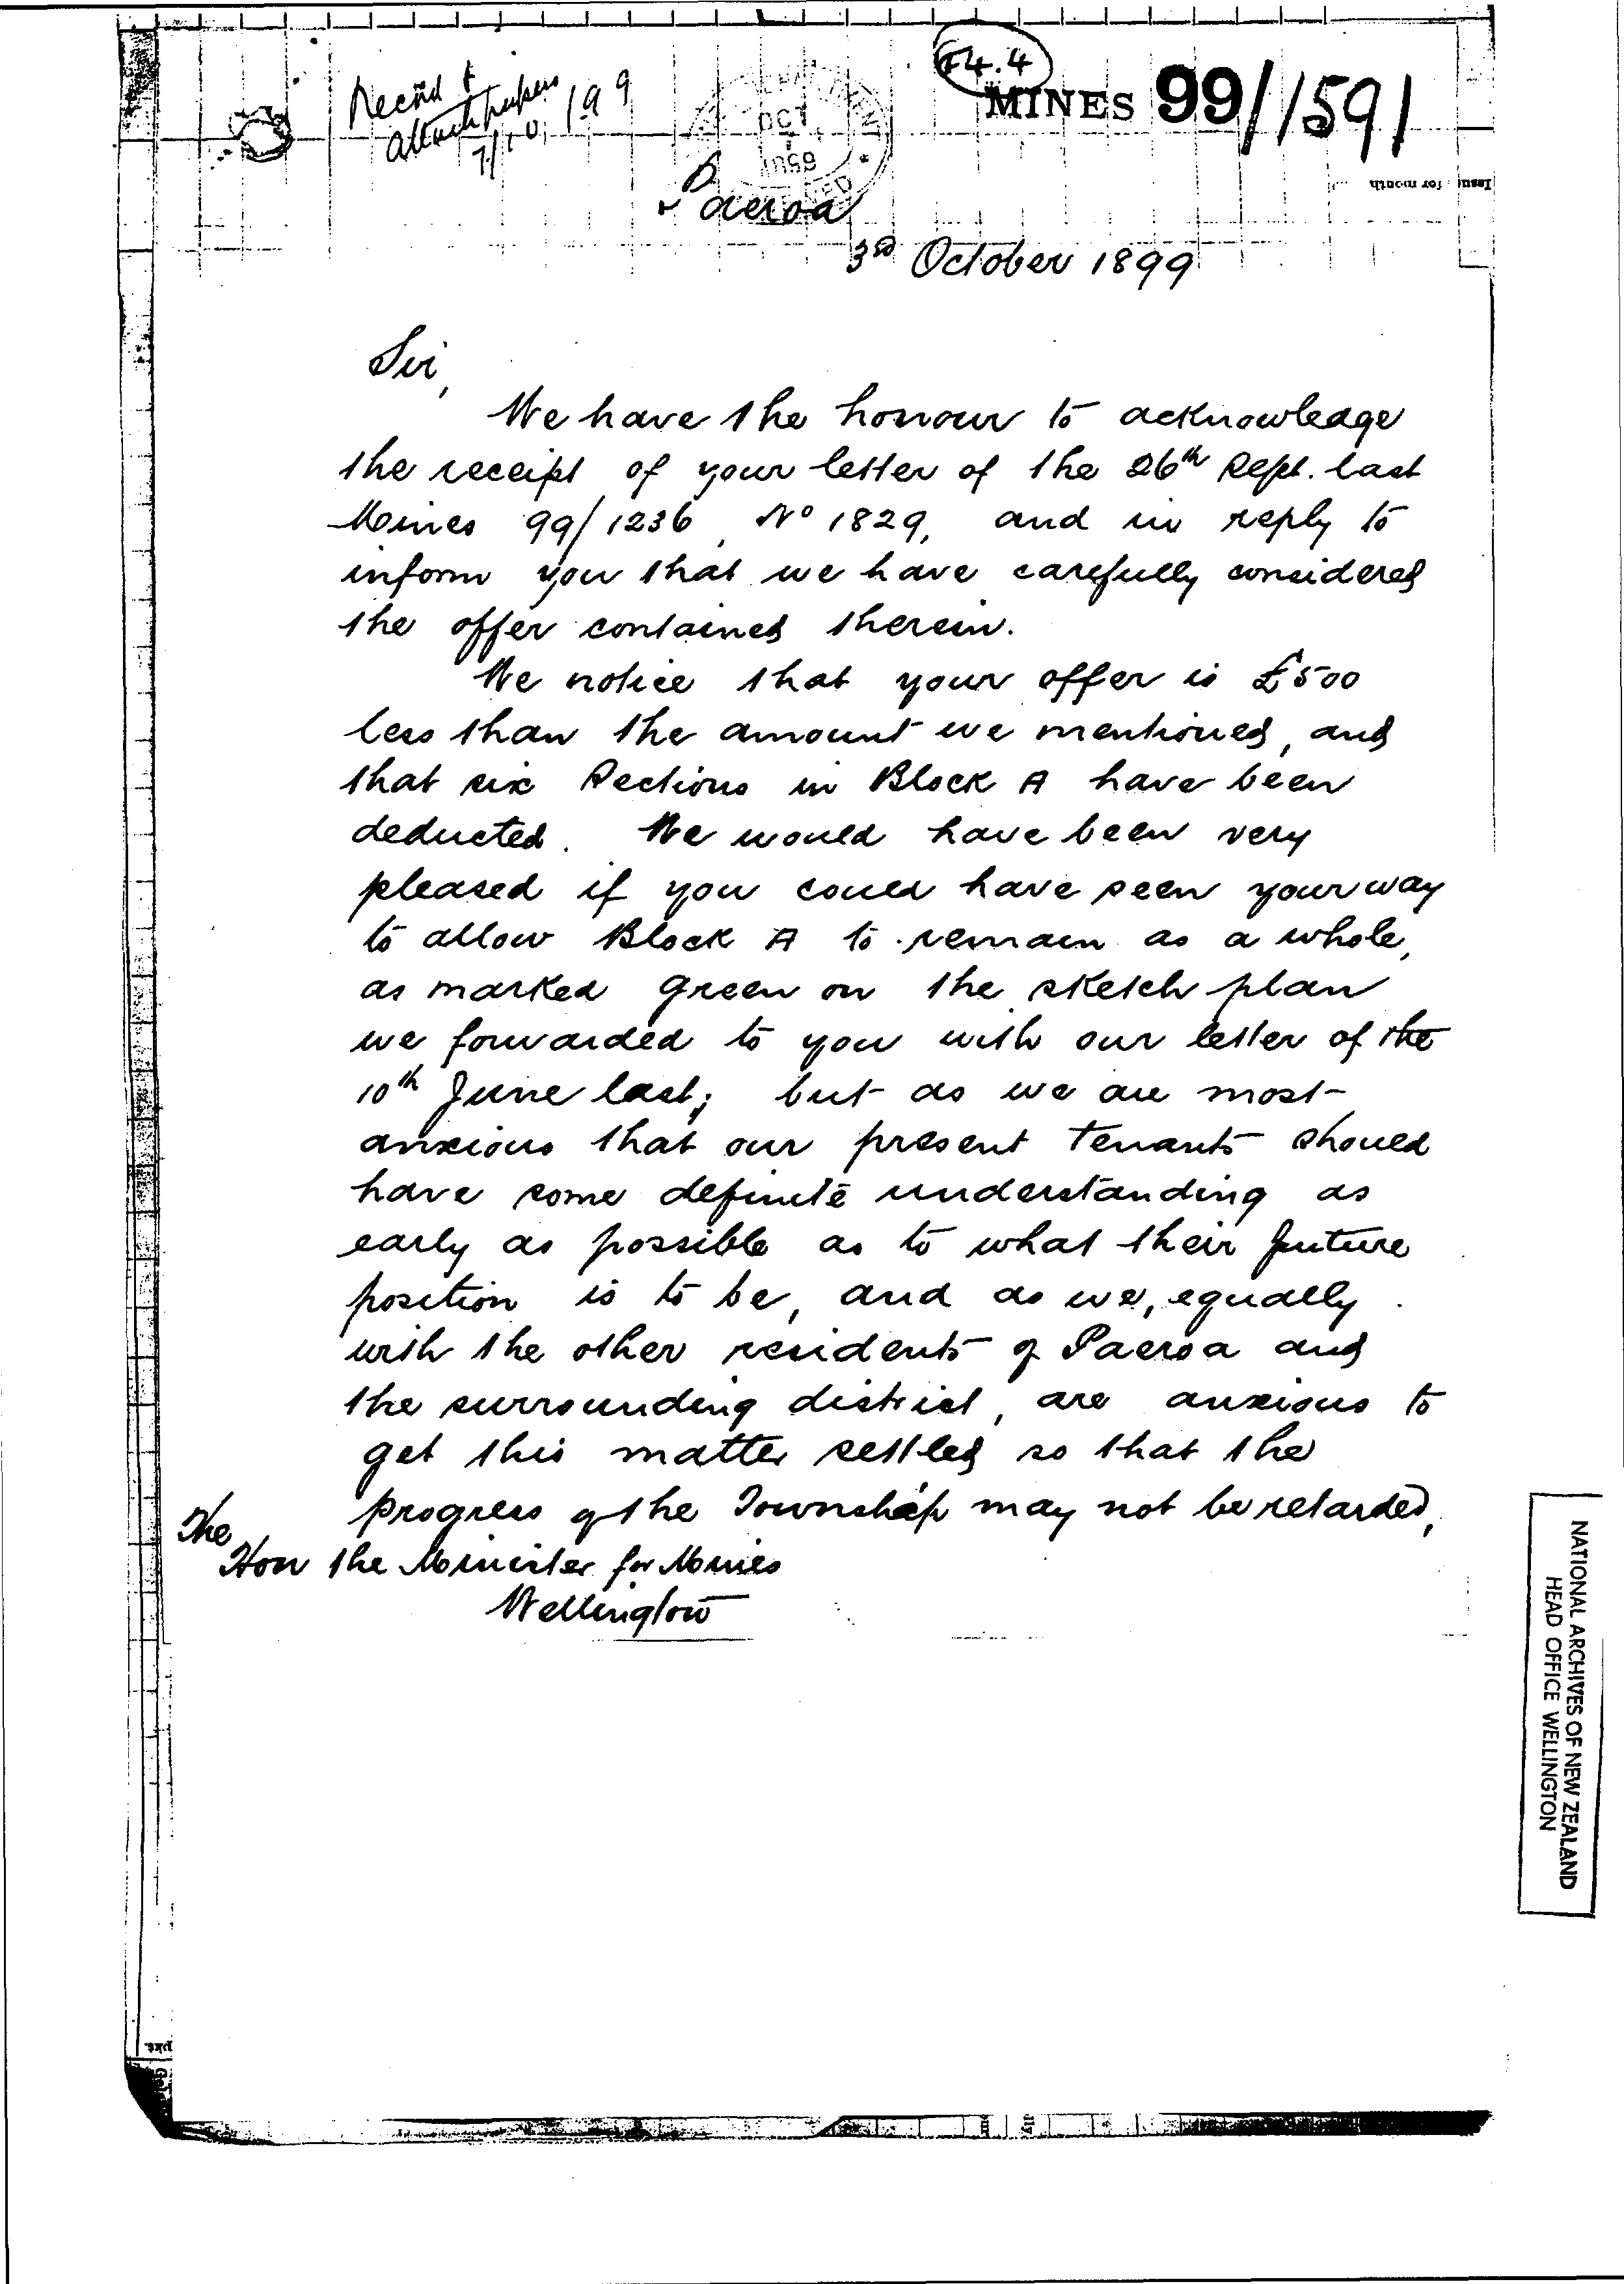 F4.4
MINES 99/1591
Record &
attach papers
7/10/99
OCT
1899
Issue for month
Paeroa
3rd October 1899
Sir,
We have the honour to acknowledge
the receipt of your letter of the 26th Sept. last
Mines 99/1236, No 1829, and in reply to
inform you that we have carefully considered
the offer contained therein.
We notice that your offer is £500
less than the amount we mentioned, and
that six Sections in Block A have been
deducted. We would have been very
pleased if you could have seen your way
to allow Block A to remain as a whole,
as marked green on the sketch plan
we forwarded to you with our letter of the
10th June last; but as we are most
anxious that our present tenants should
have some definite understanding as
early as possible as to what their future
position is to be, and as we, equally
with the other residents of Paeroa and
the surrounding district, are anxious to
get this matter settled so that the
progress of the Township may not be retarded,
The
Hon the Minister for Mines
Wellington
NATIONAL ARCHIVES OF NEW ZEALAND
HEAD OFFICE WELLINGTON
pkt.